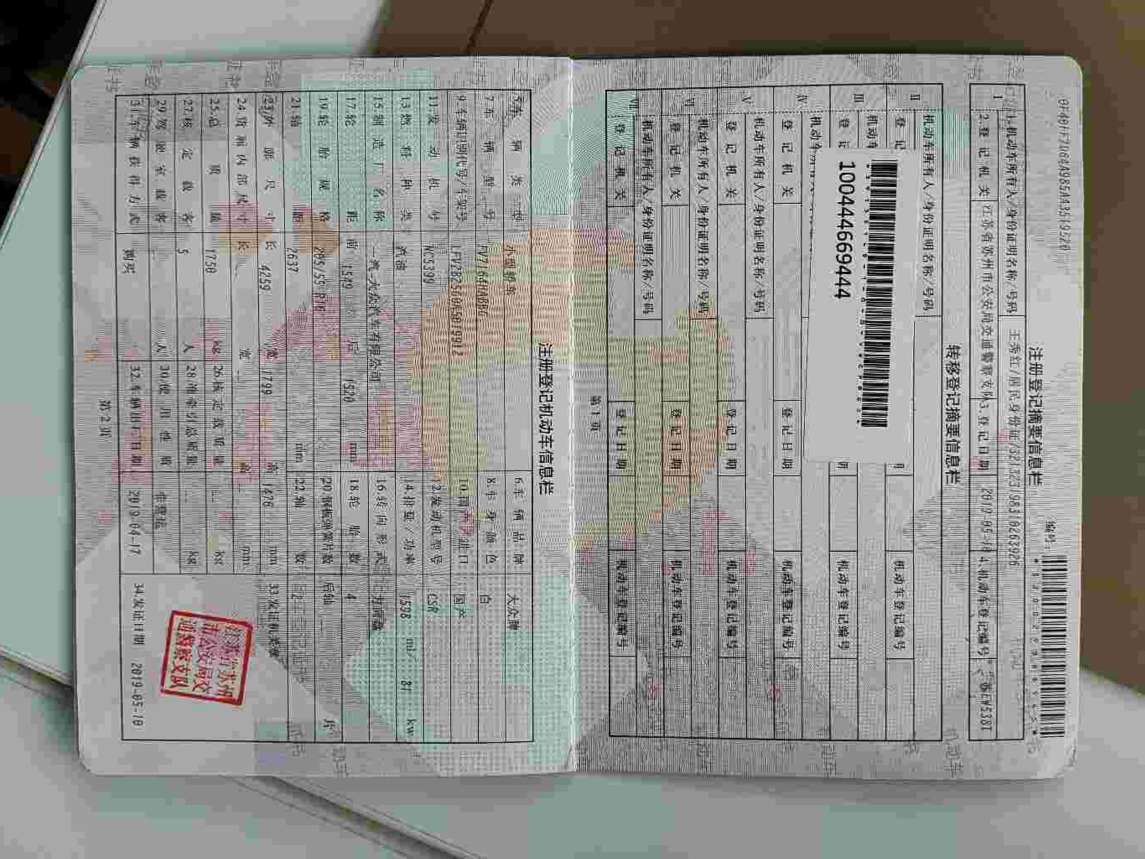 注册登记摘要信息栏
编号:
Ⅰ
1.机动车所有人/身份证明名称/号码 王秀红/居民身份证/321323198310263926
2.登记机关 江苏省苏州市公安局交通警察支队 3.登记日期 2019-05-10 4.机动车登记编号
转移登记摘要信息栏
Ⅱ
机动车所有人/身份证明名称/号码
机动车登记编号
Ⅲ
机动车登记编号
Ⅳ
登记机关 登记日期 机动车登记编号
Ⅴ
机动车所有人/身份证明名称/号码
登记机关 登记日期 机动车登记编号
Ⅵ
机动车所有人/身份证明名称/号码
登记机关 登记日期 机动车登记编号
Ⅶ
机动车所有人/身份证明名称/号码
登记机关 登记日期 机动车登记编号
100444669444
第1页
注册登记机动车信息栏
5.车辆类型 小型轿车 6.车辆品牌 大众牌
7.车辆型号 8.车身颜色 白
9.车辆识别代号/车架号 10.国产/进口 国产
11.发动机号 NC5399 12.发动机型号 CSR
13.燃料种类 汽油 14.排量/功率 1598 ml/ 81 kw
15.制造厂名称 一汽-大众汽车有限公司 16.转向形式 方向盘
17.轮距 前 1549 后 1520 mm 18.轮胎数 4
19.轮胎规格 205/55 R16 20.钢板弹簧片数 后轴 片
21.轴距 2637 mm 22.轴数 2
23.外廓尺寸 长 4259 宽 1799 高 1476 mm 33.发证机关章
24.货厢内部尺寸 长 宽 高 mm
25.总质量 1750 kg 26.核定载质量 kg
27.核定载客 5 人 28.准牵引总质量 kg
29.驾驶室载客 人 30.使用性质 非营运
31.车辆获得方式 购买 32.车辆出厂日期 2019-04-17 34.发证日期 2019-05-10
江苏省苏州
市公安局交
通警察支队
第2页